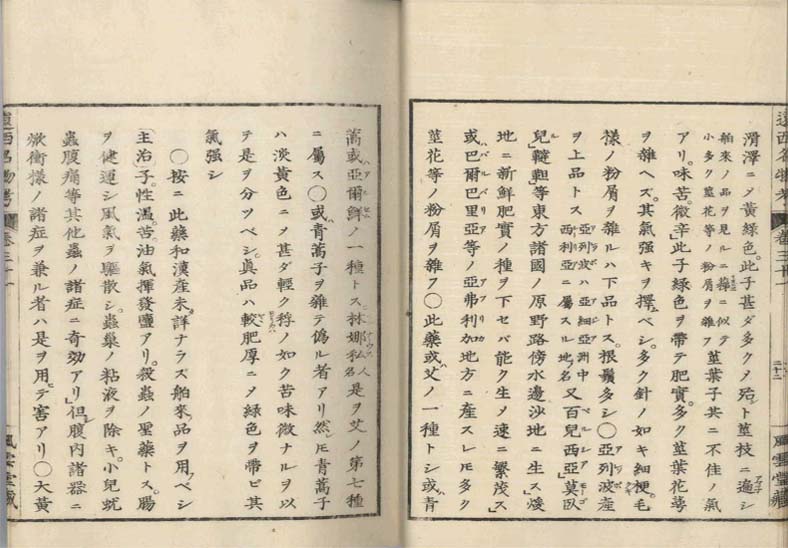 滑澤ニメ黄緑色。此子甚ダ多クメ殆ト莖枝ニ遍シ
舶來ノ品ヲ見ルニ 樺ニ似テ
小多ク莖花等ノ粉屑ヲ雜フ 莖葉子共ニ不佳ノ氣
アリ。味苦。微辛」此子緑色ヲ帶テ肥實。多ク莖葉花蕚
ヲ雜ヘズ。其氣强キヲ擇ベシ。多ク針ノ如キ細梗毛
樣ノ粉屑ヲ雜ルハ下品トス。根鬚多シ〇亞列波產
ヲ上品トス 亞列波ハ亞細亞洲中
西利亞ニ屬スル地名 又百兒西亞」莫臥
兒」韃靼」等東方諸國ノ原野路傍水邊沙地ニ生ス」
地ニ新鮮肥實ノ種ヲ下セバ能ク生メ速ニ繁茂ス」
或ハ巴爾巴里亞等ノ亞弗利加地方ニ產スレモ多ク
莖花等ノ粉屑ヲ雜フ〇此藥或ハ艾ノ一種トシ或ハ青
遠西名物考 卷三十一
二十二
風雲堂藏
蒿或ハ亞爾鮮ノ一種トス林娜私人名是ヲ艾ノ第七種
ニ屬ス〇或ハ青蒿子ヲ雜テ偽ル者アリ然レモ青蒿子
ハ淡黄色ニメ甚ダ輕ク稃ノ如ク苦味微ナルヲ以
テ是ヲ分ツベシ。眞品ハ較肥厚ニメ緑色ヲ帶ビ其
氣强シ
〇按ニ此藥和漢產未ダ詳ナラズ舶來品ヲ用ベシ
主治 子。性溫。苦。油氣揮發鹽アリ。殺蟲ノ聖藥トス。腸
ヲ健運シ風氣ヲ驅散シ。蟲巢ノ粘液ヲ除キ。小兒蚘
蟲腹痛等其他蟲ノ諸症ニ奇効アリ」但腹內諸器ニ
焮衝樣ノ諸症ヲ兼ル者ハ是ヲ用テ害アリ〇大黄
遠西名物考 卷三十一
風雲堂藏